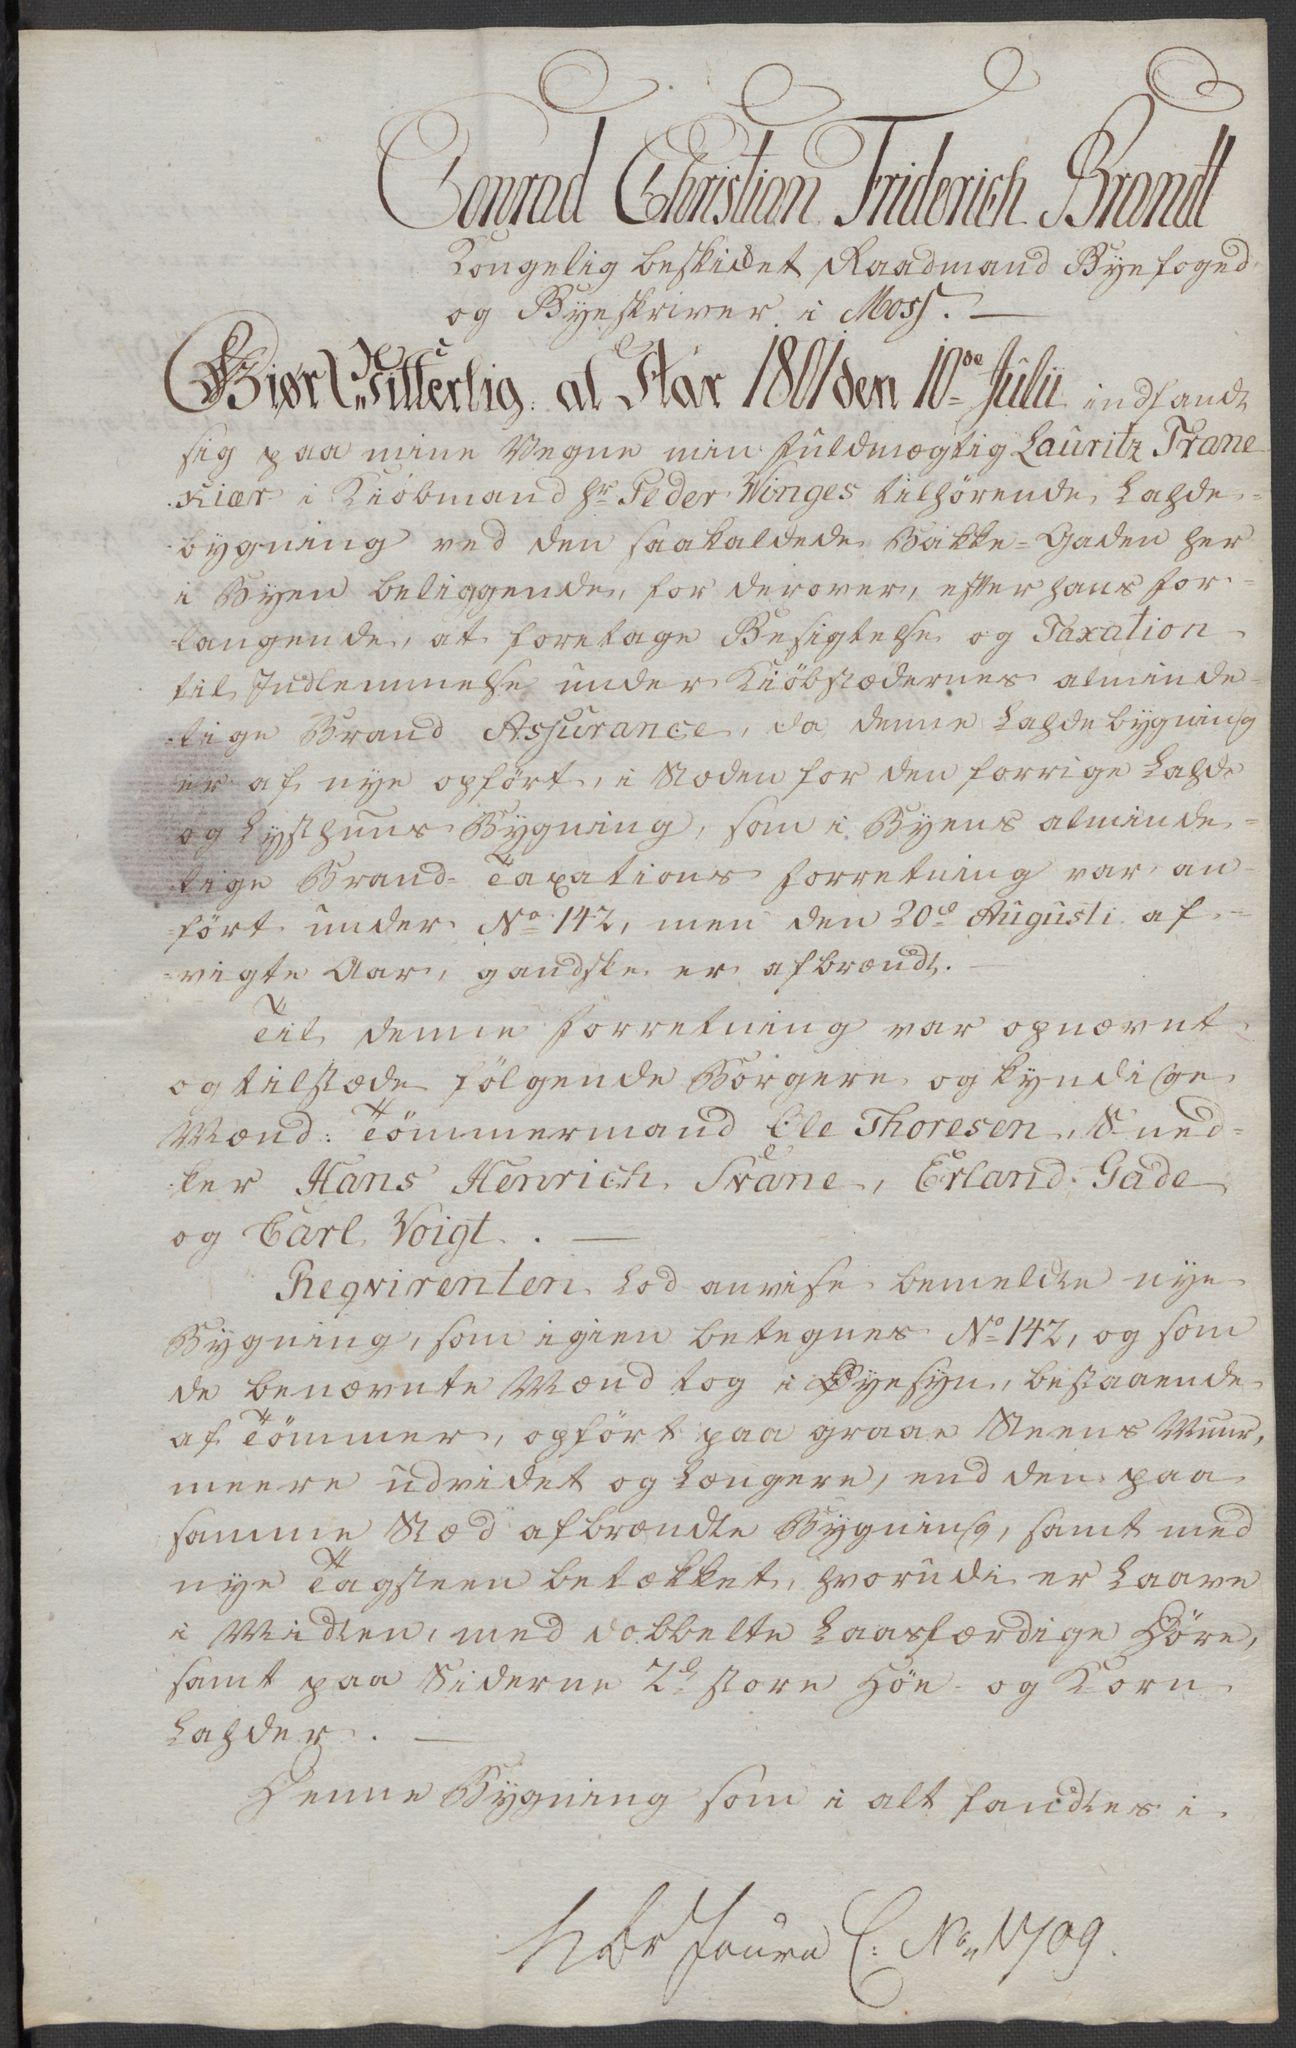 Conrad Christian Friderich Brandt
Kongelig beskikket Raadmand Byefoged
og Byeskriver i Moss. —
Giør Vitterlig: at Aar 1801 den 10de Julii indfandt
sig paa mine Vegne min Fuldmægtig Lauritz Trane
kiær i Kiöbmand Hr Peder Vinges tilhörende Lahde-
bygning ved den saakaldede Bakke-Gaden her
i Byen beliggende, for derover, efter hans for-
langende, at foretage Besigtelse og Taxation
til Indlemmelse under Kiöbstædernes alminde-
lige Brand Assurance, da denne Lahdebygning
er af nye opfört, i Stæden for den forrige Lahde
og Lysthuus Bygning, som i Byens alminde-
lige Brand-Taxations Forretning var an-
fört under No 142, men den 20de Augusti af-
vigte Aar, gandske er afbrændt. —
Til denne Forretning var opnævnt
og tilstæde fölgende Borgere og kyndige
Mænd: Tömmermand Ole Thoresen, Sned-
ker Hans Henrich Trane, Erland Gade
og Carl Voigt. —
Reqvirenten lod anvise bemeldte nye
Bygning, som igien betegnes No 142, og som
de benævnte Mænd tog i Øyesyn, bestaaende
af Tömmer, opfört paa graae Steens Muur,
meere udvidet og længere, end den paa
samme Stæd afbrændte Bygning, samt med
nye Tagsteen betækket, hvorudi er Laave
i Midten, med dobbelte Laasfærdige Döre,
samt paa Siderne 2de store Höe- og Korn
Lahder. —
Denne Bygning som i alt fandtes i
Journ C: No 1709.